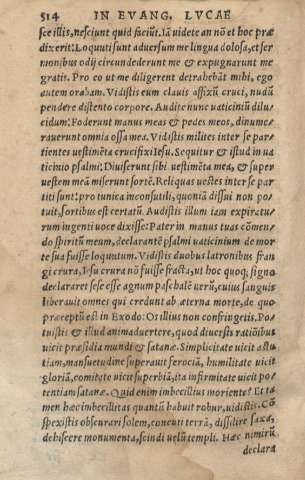 514 IN EVANG. LVCAE
sce illis, nesciunt quid faciūt. Iā uidete an nō et hoc præ
dixerit: Loquuti sunt aduersum me lingua dolosa, et ser
monibus odij circundederunt me & expugnarunt me
gratis. Pro eo ut me diligerent detrahebāt mihi, ego
autem orabam. Vidistis eum clauis affixū cruci, nudū
pendere distento corpore. Audite nunc uaticiniū dilu
cidum: Foderunt manus meas & pedes meos, dinume
rauerunt omnia ossa mea. Vidistis milites inter se par
tientes uestimēta crucifixi Iesu. Sequitur & istud in ua
ticinio psalmi: Diuiserunt sibi uestimēta mea, & super
uestem meā miserunt sortē. Reliquas uestes inter se par
titi sunt: pro tunica inconsutili, quoniā dissui non po
tuit, sortibus est certatū. Audistis illum iam expiratu
rum ingenti uoce dixisse: Pater in manus tuas cōmen
do spiritū meum, declarantē psalmi uaticinium de mor
te sua fuisse loquutum. Vidistis duobus latronibus fran
gi crura, Iesu crura nō fuisse fracta, ut hoc quoq; signo
declararet sese esse agnum paschalē uerū, cuius sanguis
liberauit omnes qui credunt ab æterna morte, de quo
præceptū est in Exodo: Os illius non confringetis. Po
tuistis & illud animaduertere, quod diuersis ratiōibus
uicit præsidia mundi & satanæ. Simplicitate uicit astu
tiam, mansuetudine superauit ferociā, humilitate uicit
gloriā, comitate uicit superbiā, ita infirmitate uicit po
tentiam satanæ. Quid enim imbecillius moriente? Et ta
men hæc imbecillitas quantū habuit robur, uidistis. Cō
spexistis obscurari solem, concuti terrā, dissilire saxa,
dehiscere monumenta, scindi uelū templi. Hæc nimirū
declara